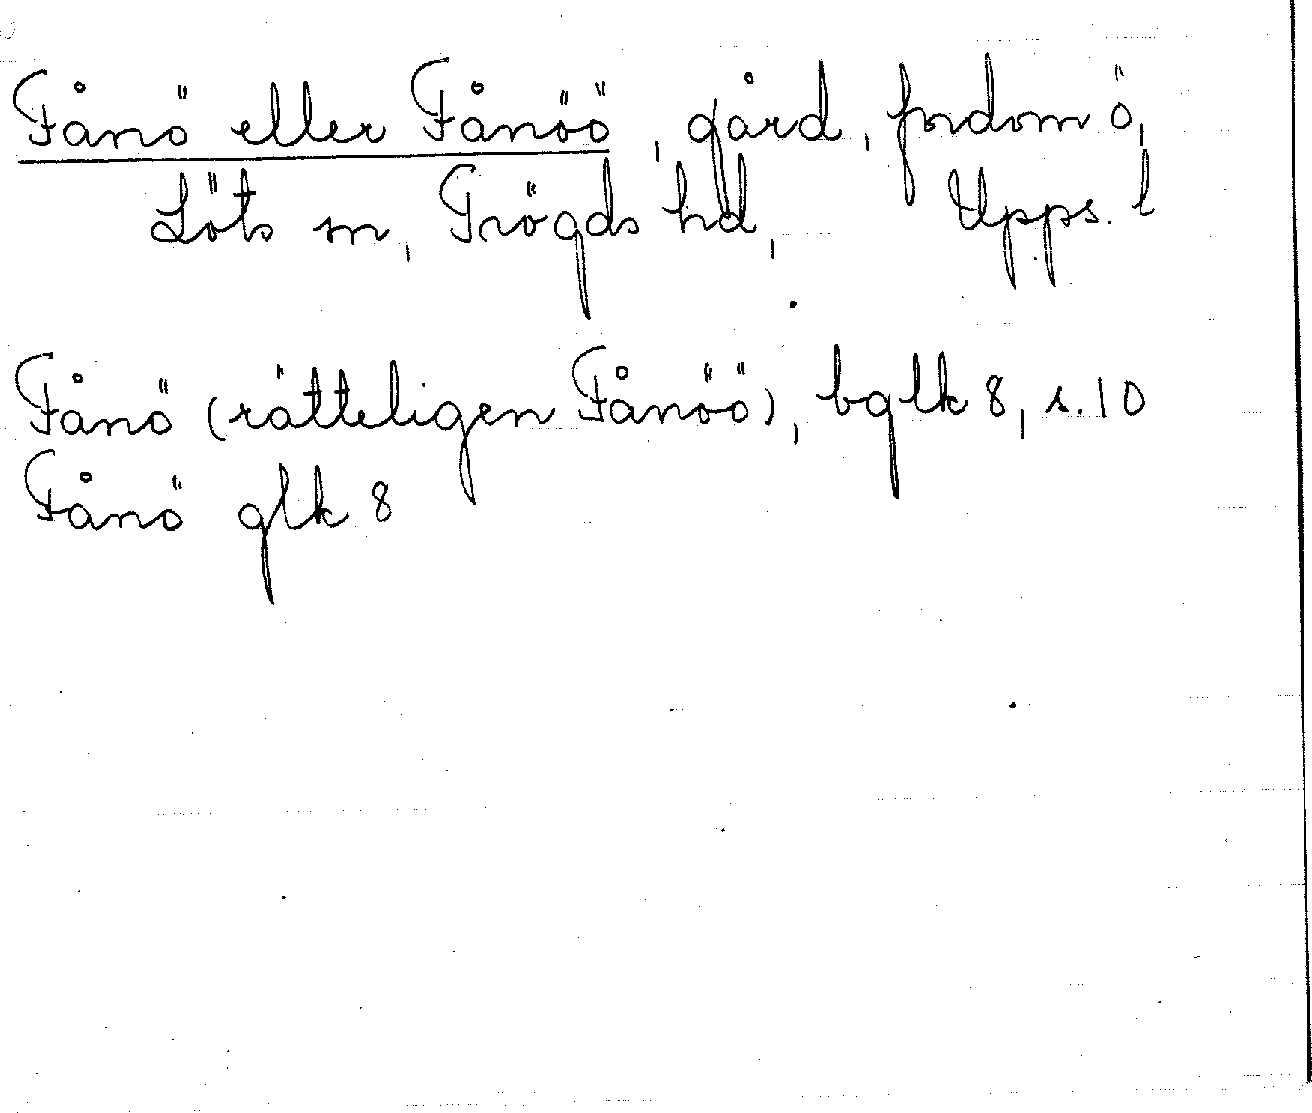 Fånö eller Fånöö, gård, fordom ö,
Löts sn, Trögds hd, Upps. l
Fånö (rätteligen Fånöö), bglk 8, s. 10
Fånö glk 8